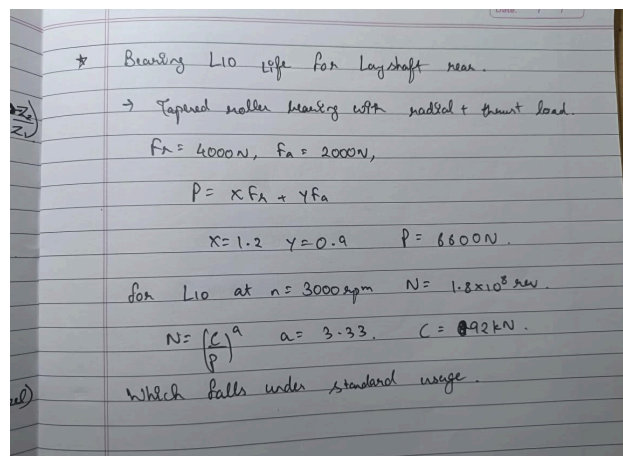 Date:
* Bearing L10 Life for Layshaft rear.
→ Tapered roller bearing with radial + thrust load.
Fr = 4000N, Fa = 2000N,
P = X Fr + Y Fa
X = 1.2 Y = 0.9 P = 6600N.
for L10 at n = 3000 rpm N = 1.8×10⁸ rev.
N = (C/P)^a a = 3.33. C = 92kN.
Which falls under standard usage.